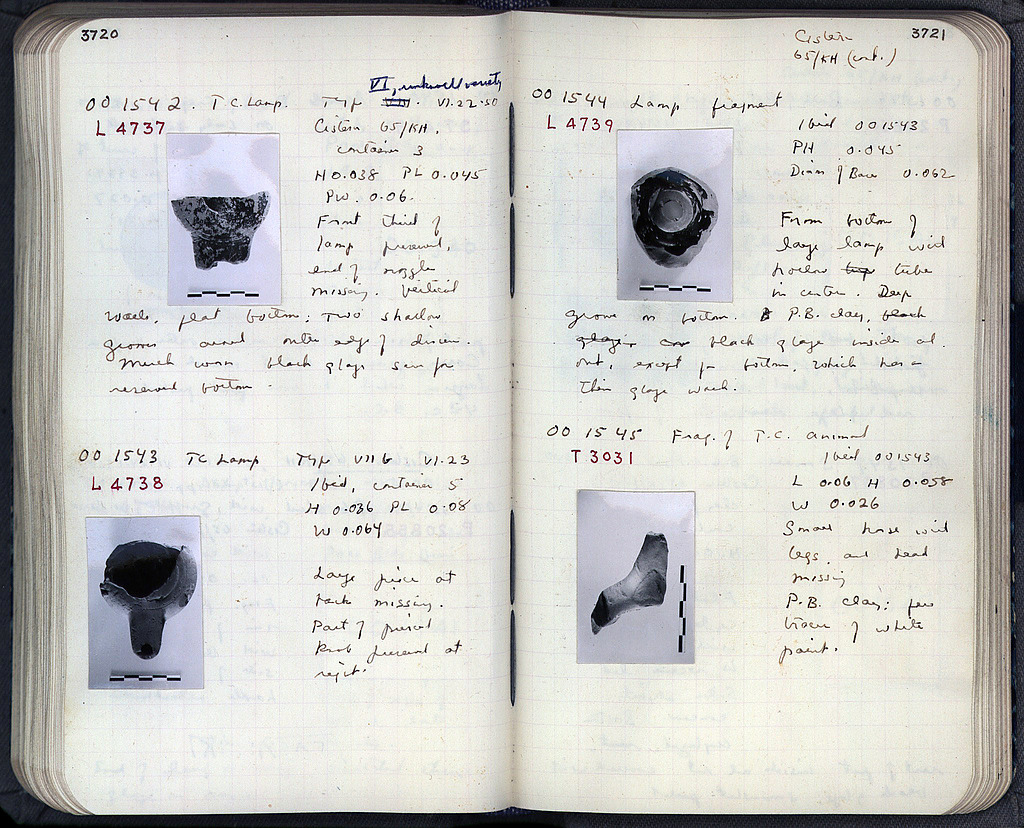 3720
VI, unknown variety
OO 1542. T.C. Lamp. Type VI.22.50
L 4737
Cistern 65/KH.
container 3
H 0.038 PL 0.045
PW. 0.06.
Front third of
lamp preserved,
end of nozzle
missing. Vertical
walls, flat bottom; two shallow
grooves around outer edge of discus.
Much worn black glaze save for
reserved bottom.
OO 1543 TC Lamp Type VII b VI.23
L 4738
Ibid, container 5
H 0.036 PL 0.08
W 0.064
Large piece at
back missing.
Part of pierced
knob preserved at
right.
3721
Cistern
65/KH (cont.)
OO 1544 Lamp fragment
L 4739
Ibid OO1543
PH 0.045
Diam of Base 0.062
From bottom of
large lamp with
hollow tube
in center. Deep
groove on bottom. P.B. clay, black
glaze, black glaze inside and
out, except for bottom, which has a
thin glaze wash.
OO 1545 Frag. of T.C. animal
T 3031
Ibid OO1543
L 0.06 H 0.058
W 0.026
Small horse with
legs and head
missing
P.B. clay; few
traces of white
paint.